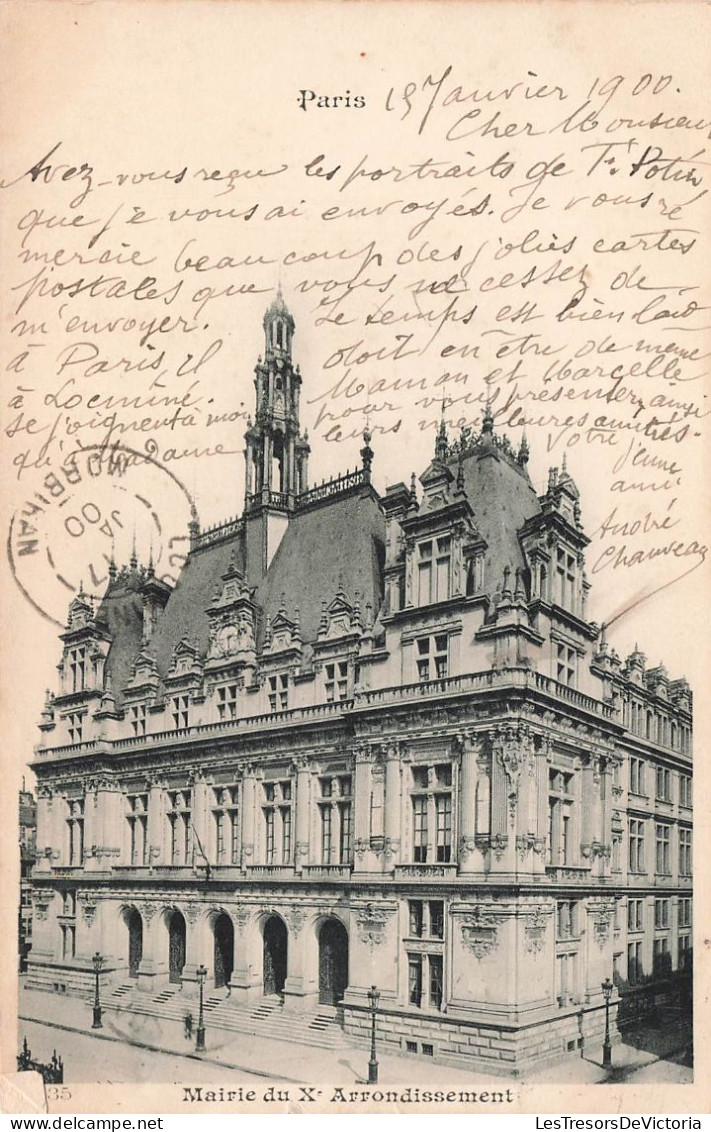 Paris
15 Janvier 1900.
Cher Monsieur
Avez-vous reçu les portraits de F. Potin
que je vous ai envoyés. Je vous ré
mercie beaucoup des jolies cartes
postales que vous ne cessez de
m'envoyer. Le temps est bien laid
à Paris, il doit en être de même
à Locminé. Maman et Marcelle
se joignent à moi pour vous présenter, ainsi
qu'à Madame leurs meilleures amitiés.
Votre
jeune
ami
André
Chauveau
MORBIHAN
17
JA
00
35
Mairie du Xe Arrondissement
LesTresorsDeVictoria@Delcampe.net